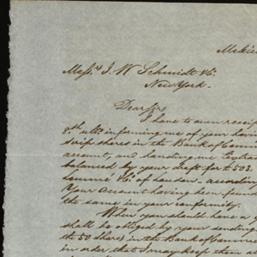 Messrs J. W. Schmidt & Co.
New York.
Dear Sirs
I have to own receip
8th ulto informing me of your havin
scrip shares in the Bank of Comm
account, and handing me
balanced by your draft for £ 503.
& Co. of London, according
Your Account having been foun
the same in your conformity.
When you should have a
shall be obliged by your sending
the 50 shares in the Bank of Commer
in order that I may keep them a